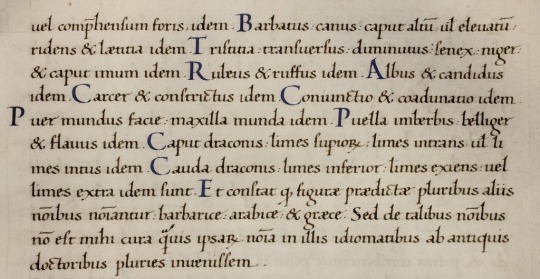 uel comp̄hensum foris. idem. Barbatus: canus: caput altū: ul̄ eleuatū:
ridens & lætitia idem. Tristitia: transuersus: diminutus: senex: niger:
& caput imum idem. Rubeus & ruffus idem. Albus & candidus
idem. Carcer & constrictus idem. Coniunctio & coadunatio idem.
Puer mundus facie: maxilla munda idem. Puella imberbis: belliger
& flauus idem. Caput draconis: limes supioꝝ: limes intrans: ul̄ li
mes intus idem. Cauda draconis: limes inferior: limes exiens: uel
limes extra idem sunt. Et constat ꝙ figuræ prædictæ pluribus aliis
nōibus nōiantur: barbarice: arabice: & græce. Sed de talibus nōibus
nō est mihi cura q̄uis ipsaꝝ nōia in illis idiomatibus ab antiquis
doctoribus pluries inuenissem.